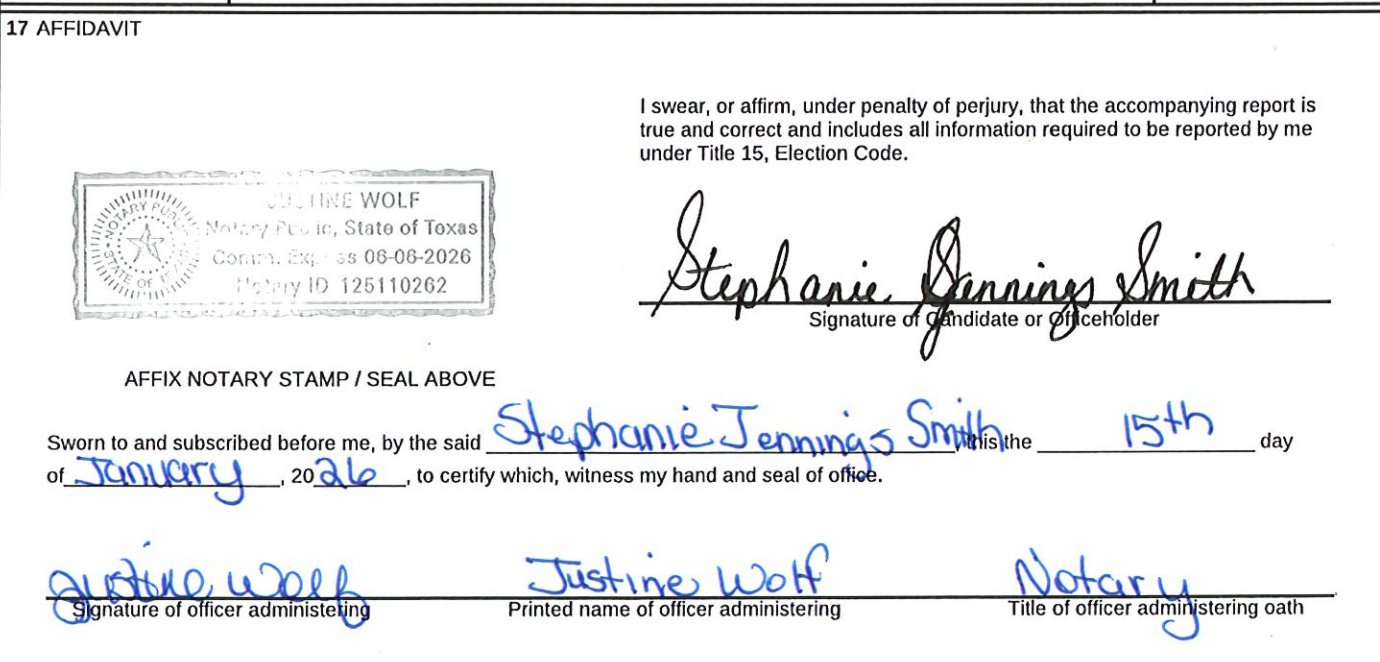 17 AFFIDAVIT
I swear, or affirm, under penalty of perjury, that the accompanying report is
true and correct and includes all information required to be reported by me
under Title 15, Election Code.
JUSTINE WOLF
Notary Public, State of Texas
Comm. Expires 06-06-2026
Notary ID 125110262
NOTARY PUBLIC
STATE OF TEXAS
Stephanie Jennings Smith
Signature of Candidate or Officeholder
AFFIX NOTARY STAMP / SEAL ABOVE
Sworn to and subscribed before me, by the said Stephanie Jennings Smith, this the 15th day
of January, 2026, to certify which, witness my hand and seal of office.
Justine Wolf Justine Wolf Notary
Signature of officer administering Printed name of officer administering Title of officer administering oath